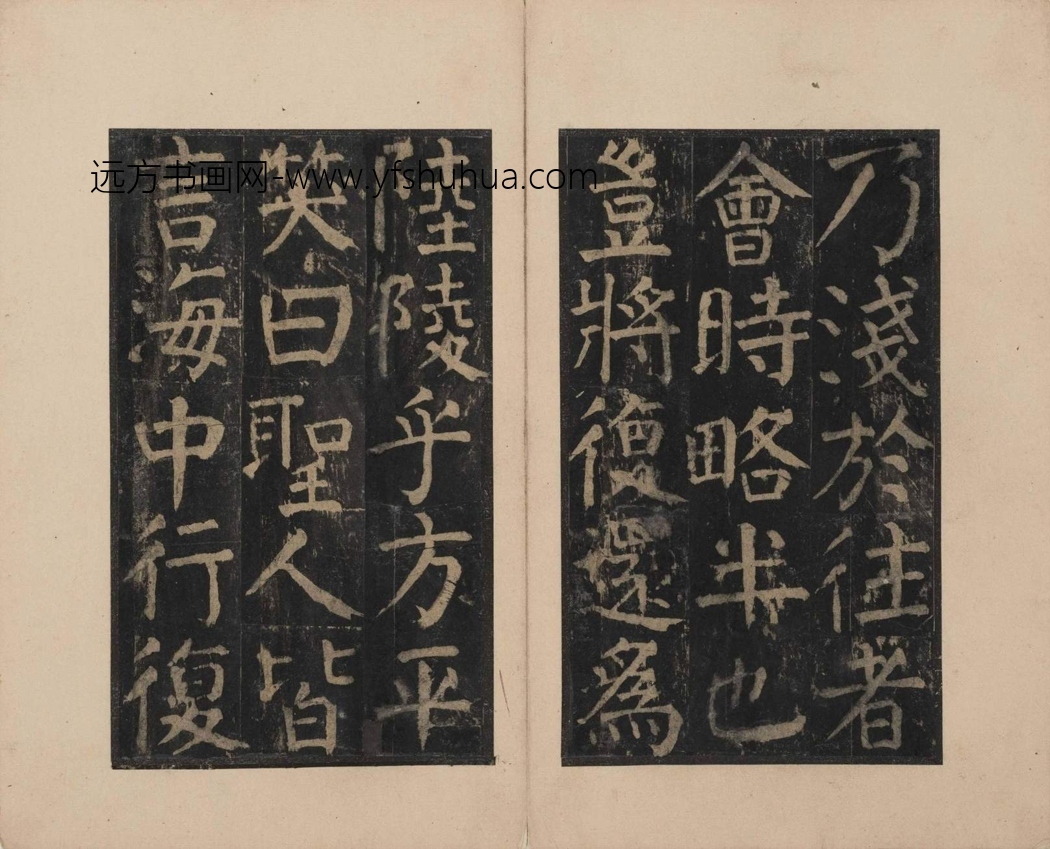 乃淺於往者
會時略半也
豈將復還為
陸陵乎方平
笑曰聖人皆
言海中行復
远方书画网-www.yfshuhua.com